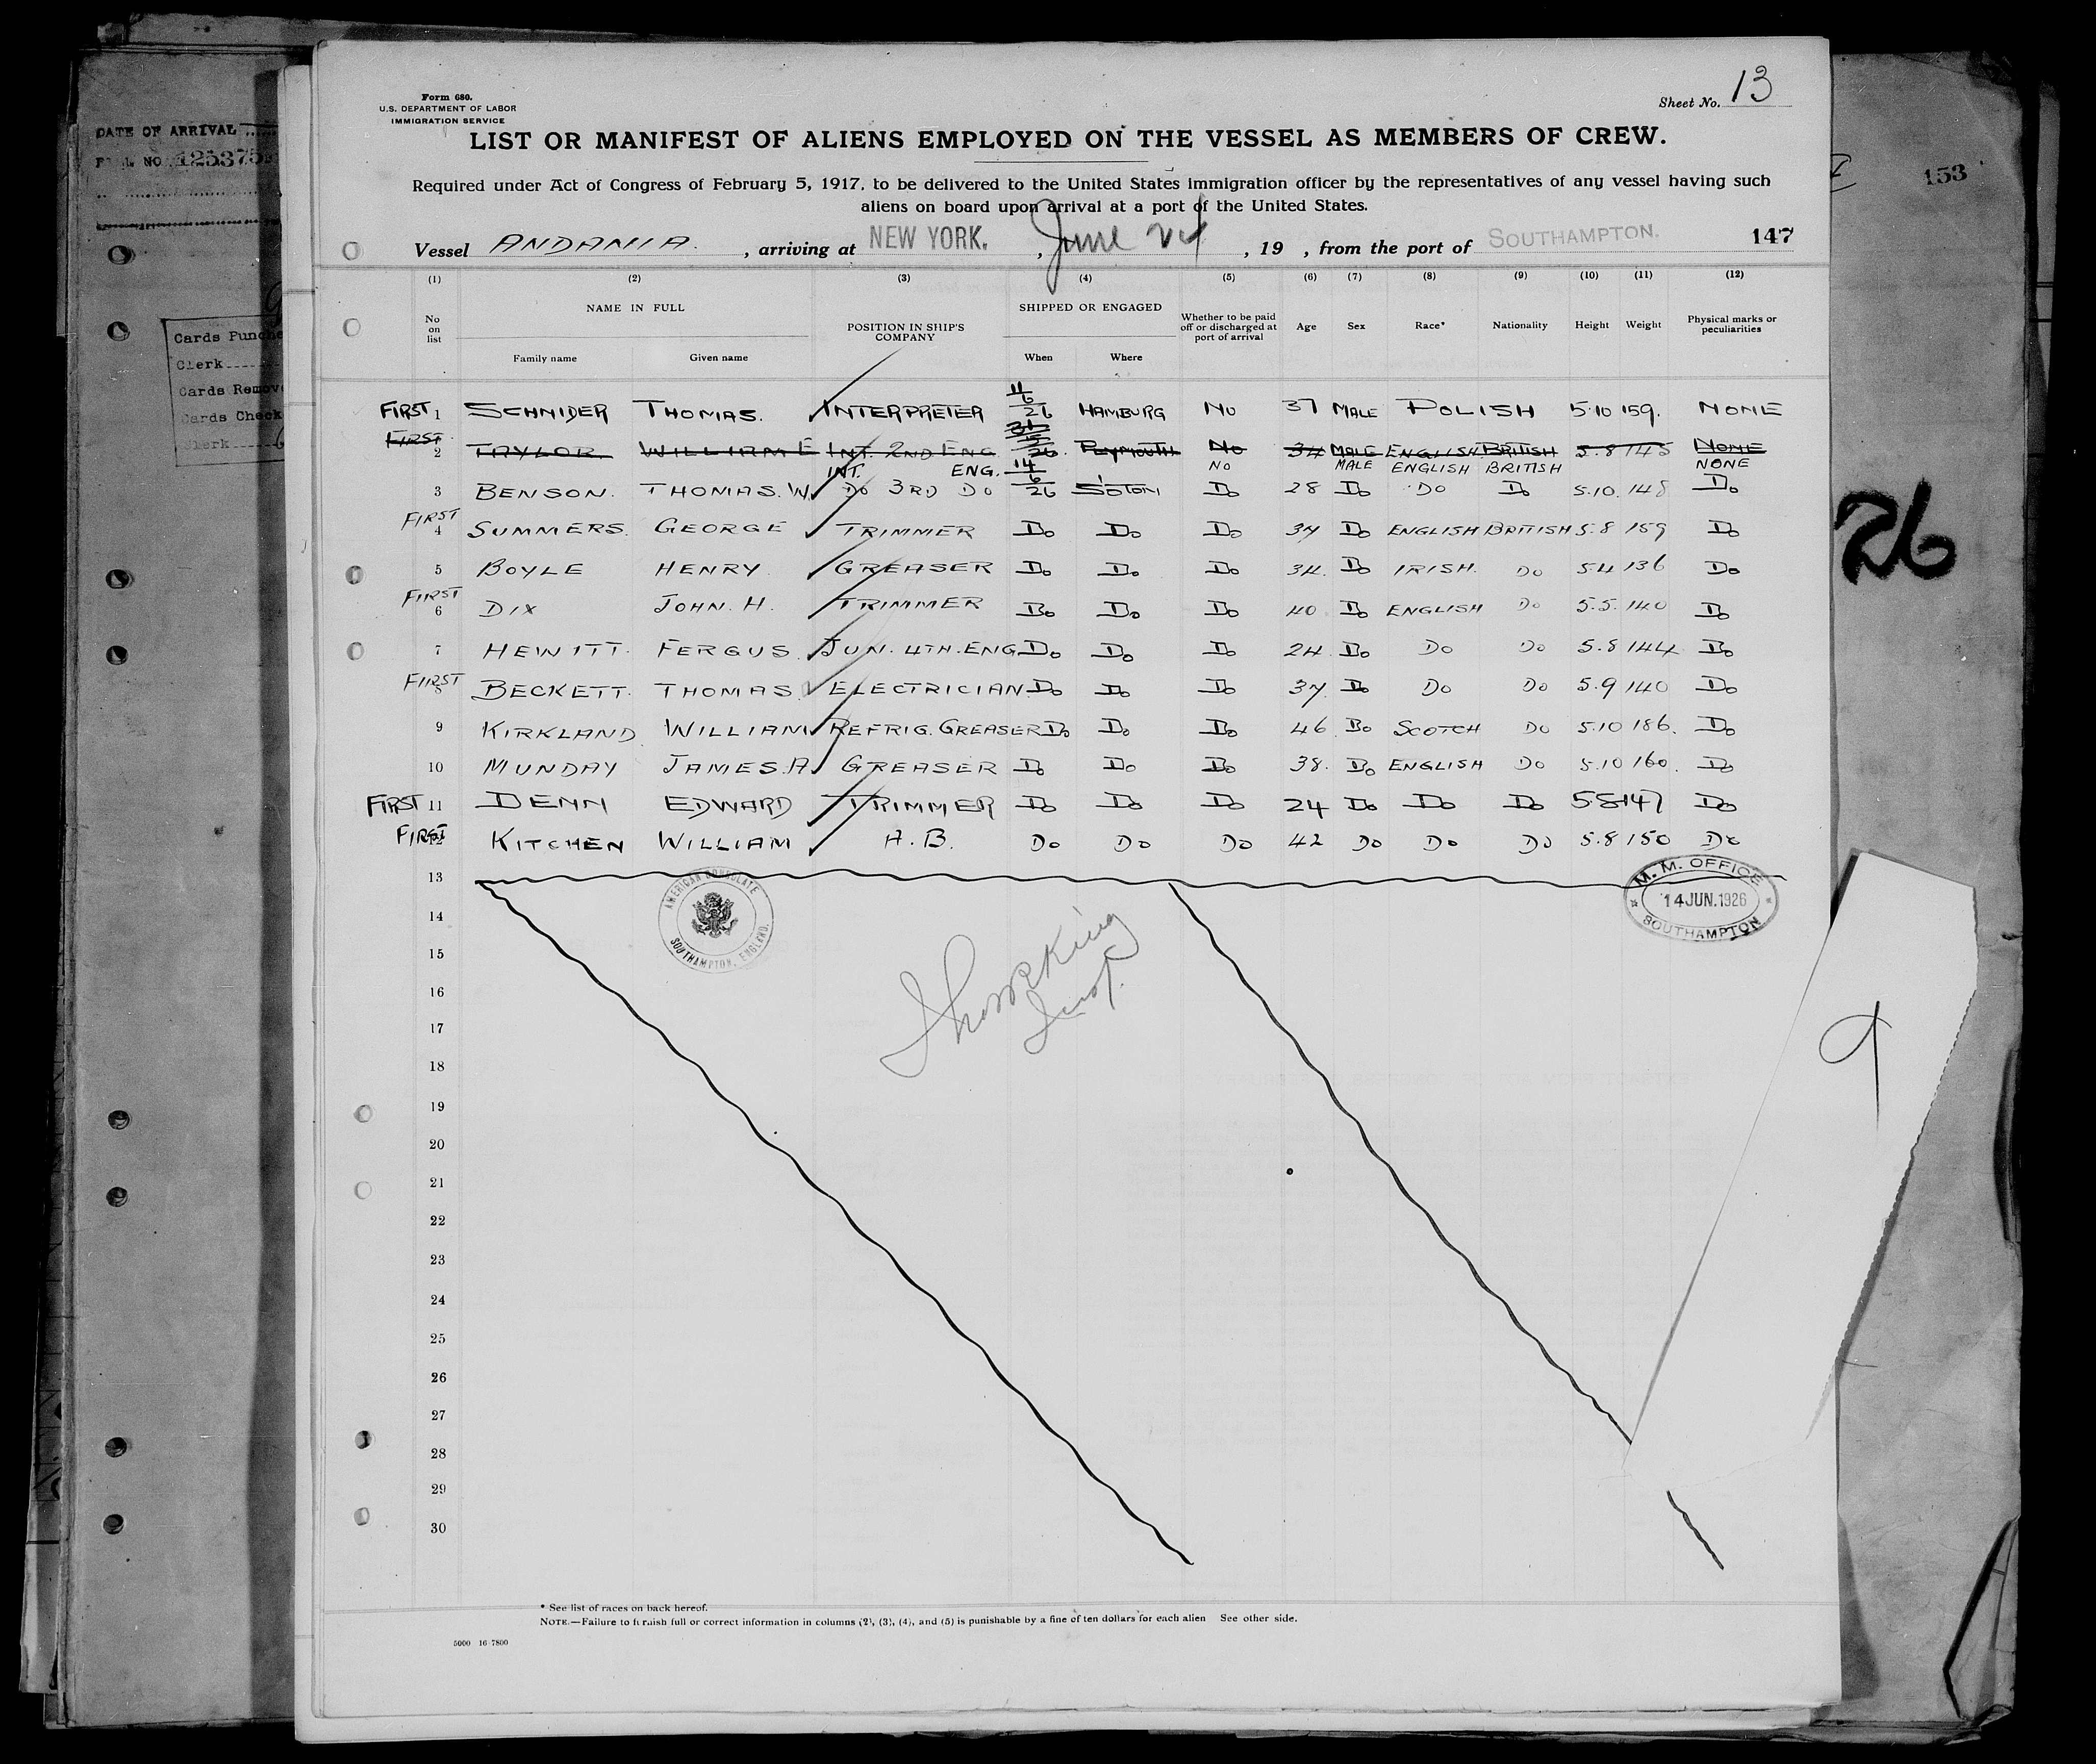 DATE OF ARRIVAL
Cards Punche
Clerk
Cards Remov
Cards Check
Clerk
Form 680.
U.S. DEPARTMENT OF LABOR
IMMIGRATION SERVICE
Sheet No. 13
LIST OR MANIFEST OF ALIENS EMPLOYED ON THE VESSEL AS MEMBERS OF CREW.
Required under Act of Congress of February 5, 1917, to be delivered to the United States immigration officer by the representatives of any vessel having such
aliens on board upon arrival at a port of the United States.
153
Vessel ANDANIA. , arriving at NEW YORK. , June 24 , 19 , from the port of SOUTHAMPTON. 147
(1) (2) (3) (4) (5) (6) (7) (8) (9) (10) (11) (12)
No on list NAME IN FULL Family name Given name POSITION IN SHIP'S COMPANY SHIPPED OR ENGAGED When Where Whether to be paid off or discharged at port of arrival Age Sex Race* Nationality Height Weight Physical marks or peculiarities
FIRST 1 SCHNIDER THOMAS. INTERPRETER 11/6/26 HAMBURG NO 37 MALE POLISH 5·10 159. NONE
FIRST 2 TAYLOR. WILLIAM E INT. 2ND ENG 26. PLYMOUTH NO 34 MALE ENGLISH BRITISH 5.8 145 NONE
INT. ENG. 14/6/26 NO MALE ENGLISH BRITISH NONE
3 BENSON. THOMAS. W. DO 3RD DO S'OTON DO 28 DO DO DO 5.10. 148 DO
FIRST 4 SUMMERS. GEORGE TRIMMER DO DO DO 37 DO ENGLISH BRITISH 5.8 159 DO
5 BOYLE HENRY GREASER DO DO DO 34. DO IRISH. DO 5.4 136 DO
FIRST 6 DIX JOHN. H. TRIMMER DO DO DO 40 DO ENGLISH DO 5.5. 140 DO
7 HEWITT. FERGUS JUN. 4TH. ENG DO DO DO 24 DO DO DO 5.8 144 DO
FIRST 8 BECKETT. THOMAS ELECTRICIAN. DO DO DO 37. DO DO DO 5.9 140 DO
9 KIRKLAND WILLIAM REFRIG. GREASER DO DO DO 46 DO SCOTCH DO 5.10 186. DO
10 MUNDAY JAMES. A GREASER DO DO DO 38. DO ENGLISH DO 5.10 160. DO
FIRST 11 DENN EDWARD TRIMMER DO DO DO 24 DO DO DO 5.8 147 DO
FIRST 12 KITCHEN WILLIAM A.B. DO DO DO 42 DO DO DO 5.8 150 DO
26
13
AMERICAN CONSULATE
SOUTHAMPTON, ENGLAND.
M. M. OFFICE
14 JUN. 1926
SOUTHAMPTON
14
15
16
17
18
19
20
21
22
23
24
25
26
27
28
29
30
* See list of races on back hereof.
NOTE.—Failure to furnish full or correct information in columns (2), (3), (4), and (5) is punishable by a fine of ten dollars for each alien See other side.
5000 16-7800